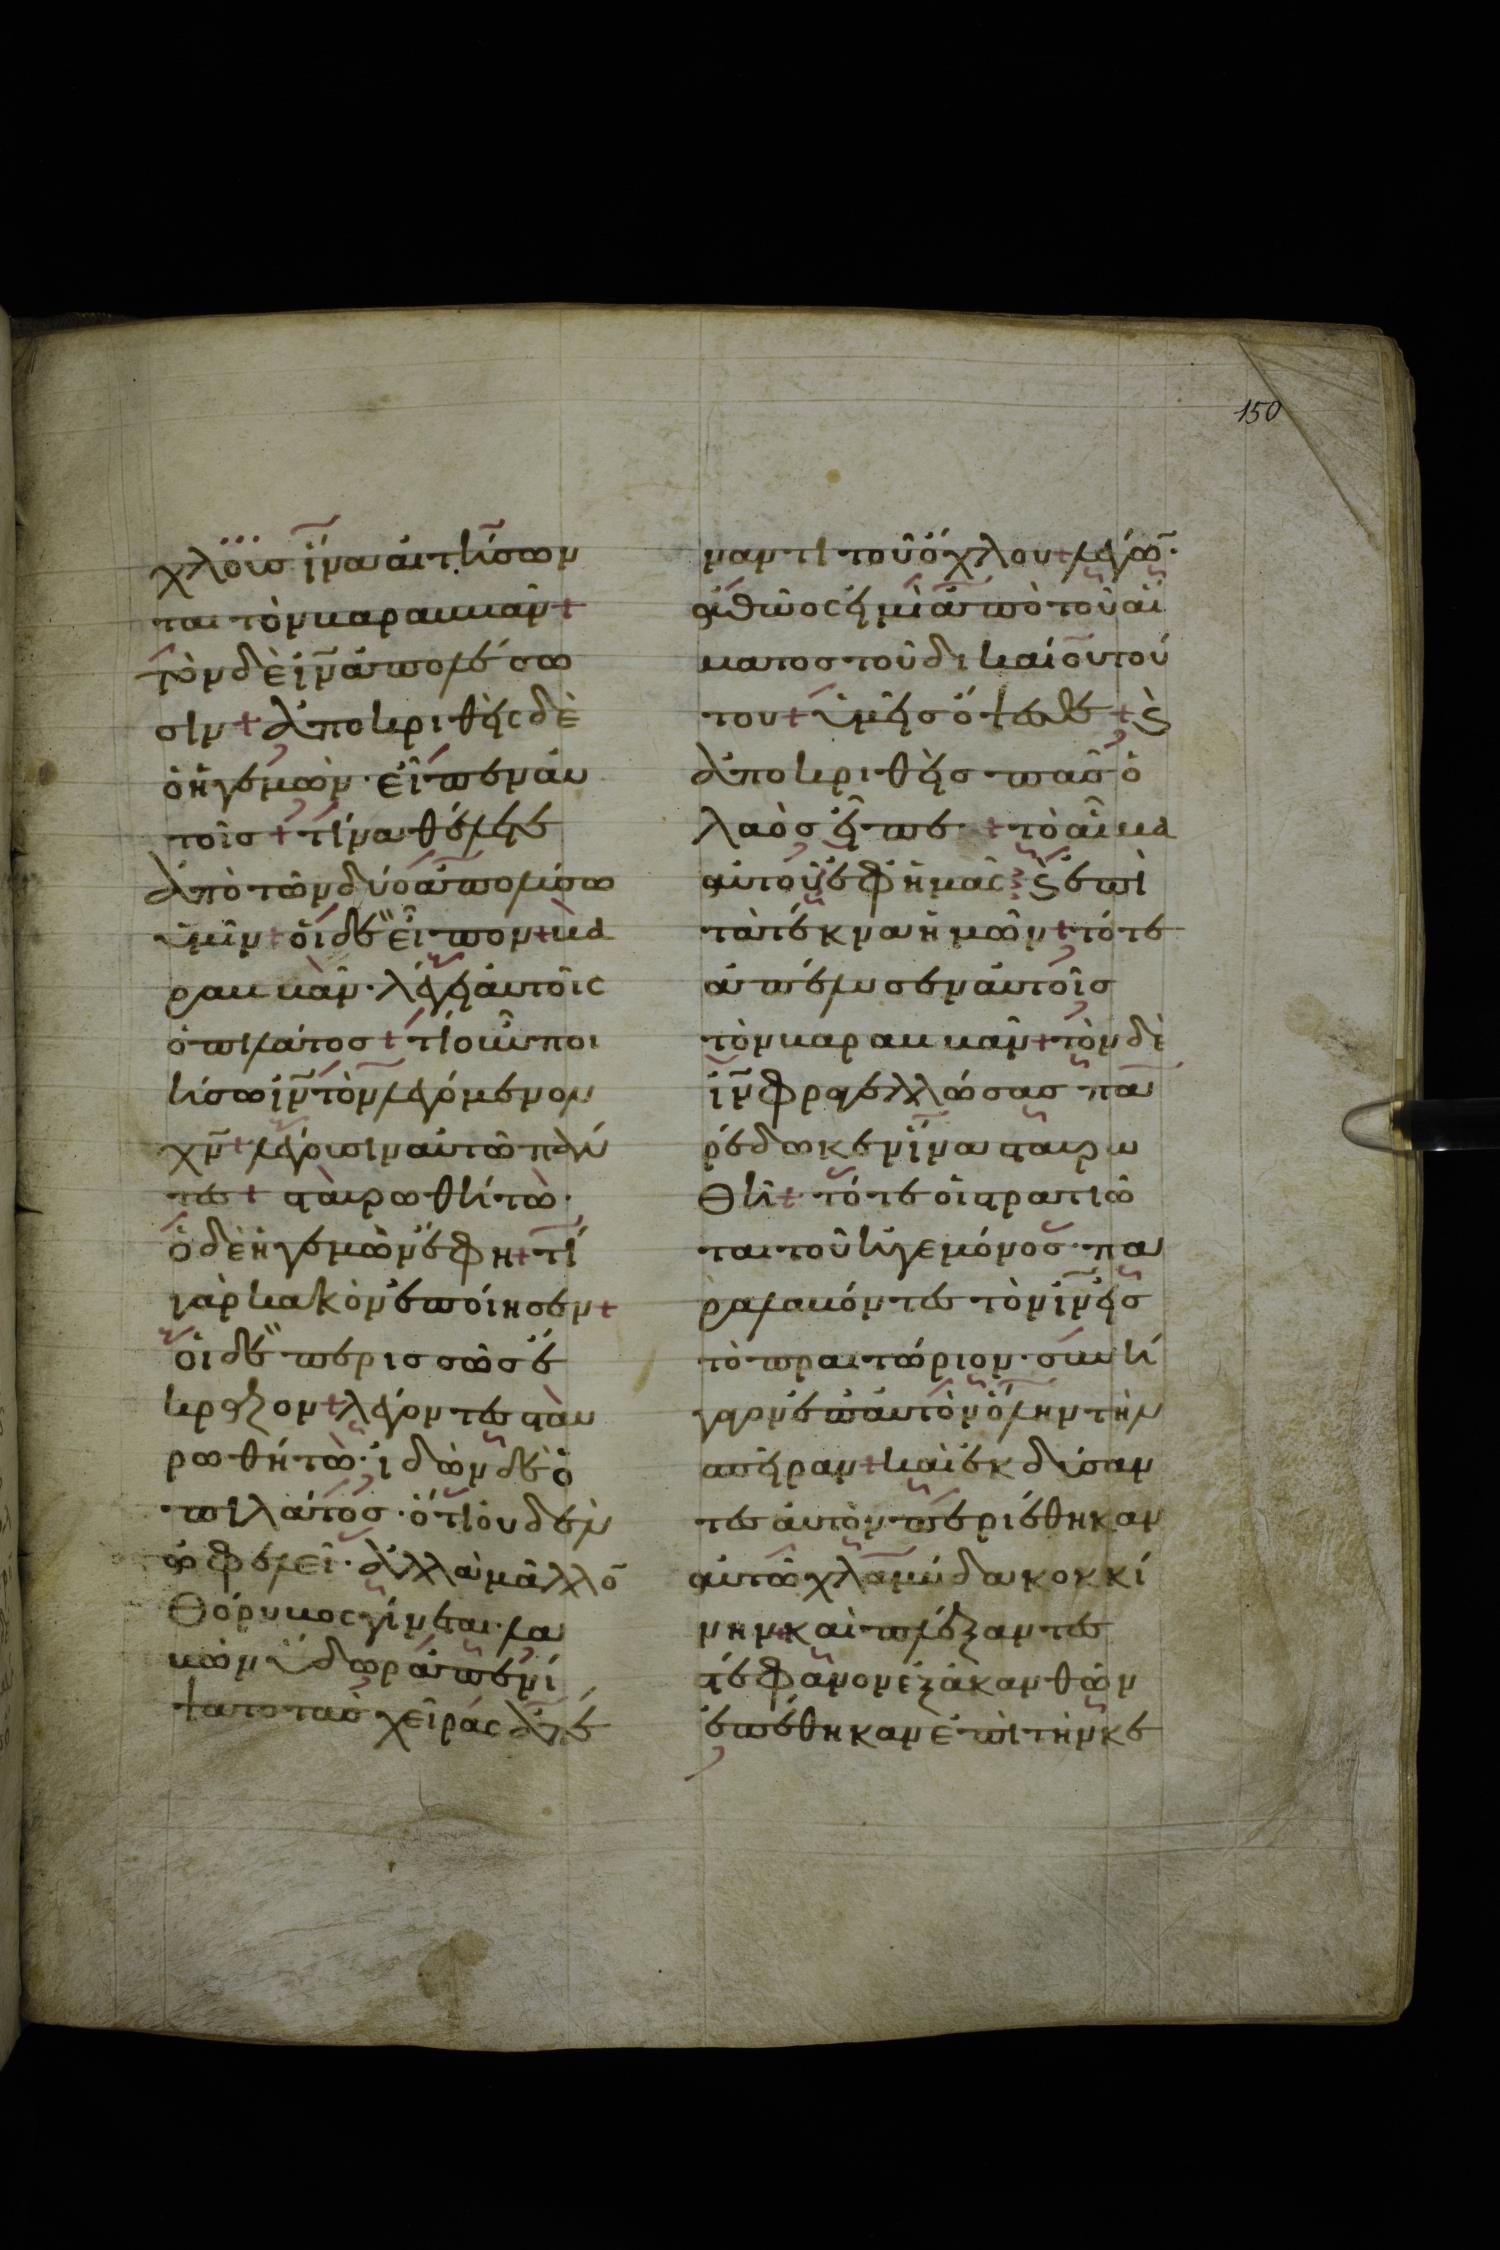 150
χλοις ἵνα αἰτήσων
ται τὸν βαραββᾶν +
τὸν δὲ ἰν̅ ἀπολέσω
σιν + ἀποκριθεὶς δὲ
ὁ ἡγεμὼν · εἶπεν αυ
τοῖς + τίνα θέλετε
ἀπὸ τῶν δύο ἀπολύσω
ὑμῖν + οἱ δὲ εἶπον + βα
ραββᾶν · λέγει αὐτοῖς
ὁ πιλάτος + τί οὖν ποι
ήσω ἰν̅ τὸν λεγόμενον
χν̅ + λέγουσιν αὐτῶ πάν
τες + σταυρωθήτω ·
ὁ δὲ ἡγεμὼν ἔφη + τί
γὰρ κακὸν ἐποίησεν +
οἱ δὲ περισσῶς ἔ
κραζον + λέγοντες σταυ
ρωθήτω · ἰδὼν δὲ ὁ
πιλάτος · ὅτι οὐδὲν
ὠφελεῖ · ἀλλὰ μᾶλλο̅
θόρυβος γίνεται · λα
βὼν ὕδωρ ἀπενί
ψατο τὰς χεῖρας ἀπέ
ναντι τοῦ ὄχλου + λέγω̅ ·
ἀθῶος εἰμὶ ἀπὸ τοῦ αἵ
ματος τοῦ δικαίου τού
του + ὑμεῖς ὄψεσθε + ϗ
ἀποκριθεὶς πᾶς ὁ
λαὸς εἶπε · + τὸ αἷμα
αὐτοῦ ἐφ ἡμᾶς ϗ ἐπὶ
τὰ τέκνα ἡμῶν + τότε
ἀπέλυσεν αὐτοῖς
τὸν βαραββᾶν + τὸν δὲ
ἰν̅ φραγελλώσας πα
ρέδωκεν ἵνα σταυρω
θῆ + τότε οἱ στρατιῶ
ται τοῦ ἡγεμόνος · πα
ραλαβόντες τὸν ἰν̅ εἰς
τὸ πραιτώριον · συνή
γαγον ἐπ αὐτὸν ὅλην τὴν
σπεῖραν + καὶ ἐκδύσαν
τες αὐτὸν περιέθηκαν
αὐτῶ χλαμύδα κοκκί
νην + καὶ πλέξαντες
στέφανον ἐξ ἀκανθῶν
ἐπέθηκαν ἐπὶ τὴν κε